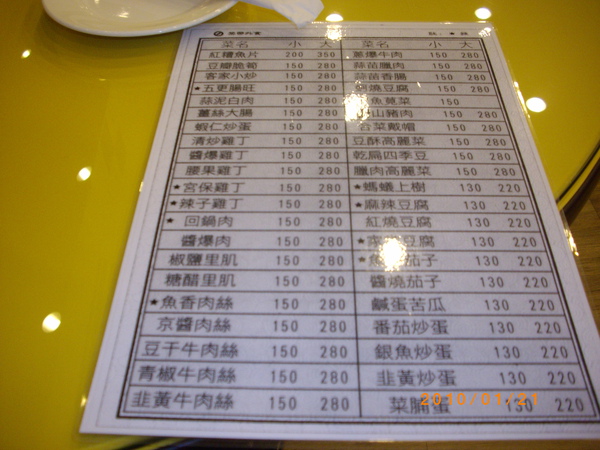 菜名 小 大 菜名 小 大
紅糟魚片 200 350 蔥爆牛肉 150 280
豆瓣脆筍 150 280 蒜苗臘肉 150 280
客家小炒 150 280 蒜苗香腸 150 280
★五更腸旺 150 280 燒豆腐 150 280
蒜泥白肉 150 280 魚莧菜 150
薑絲大腸 150 280 山豬肉 150 280
蝦仁炒蛋 150 280 合菜戴帽 150 280
清炒雞丁 150 280 豆酥高麗菜 150 280
醬爆雞丁 150 280 乾扁四季豆 150 280
腰果雞丁 150 280 臘肉高麗菜 150 280
★宮保雞丁 150 280 ★螞蟻上樹 130 220
★辣子雞丁 150 280 ★麻辣豆腐 130 220
★回鍋肉 150 280 紅燒豆腐 130 220
醬爆肉 150 280 ★豆腐 130 220
椒鹽里肌 150 280 ★魚茄子 130 220
糖醋里肌 150 280 醬燒茄子 130 220
★魚香肉絲 150 280 鹹蛋苦瓜 130 220
京醬肉絲 150 280 番茄炒蛋 130 220
豆干牛肉絲 150 280 銀魚炒蛋 130 220
青椒牛肉絲 150 280 韭黃炒蛋 130 220
韭黃牛肉絲 150 280 菜脯蛋 130 220
2010/01/21